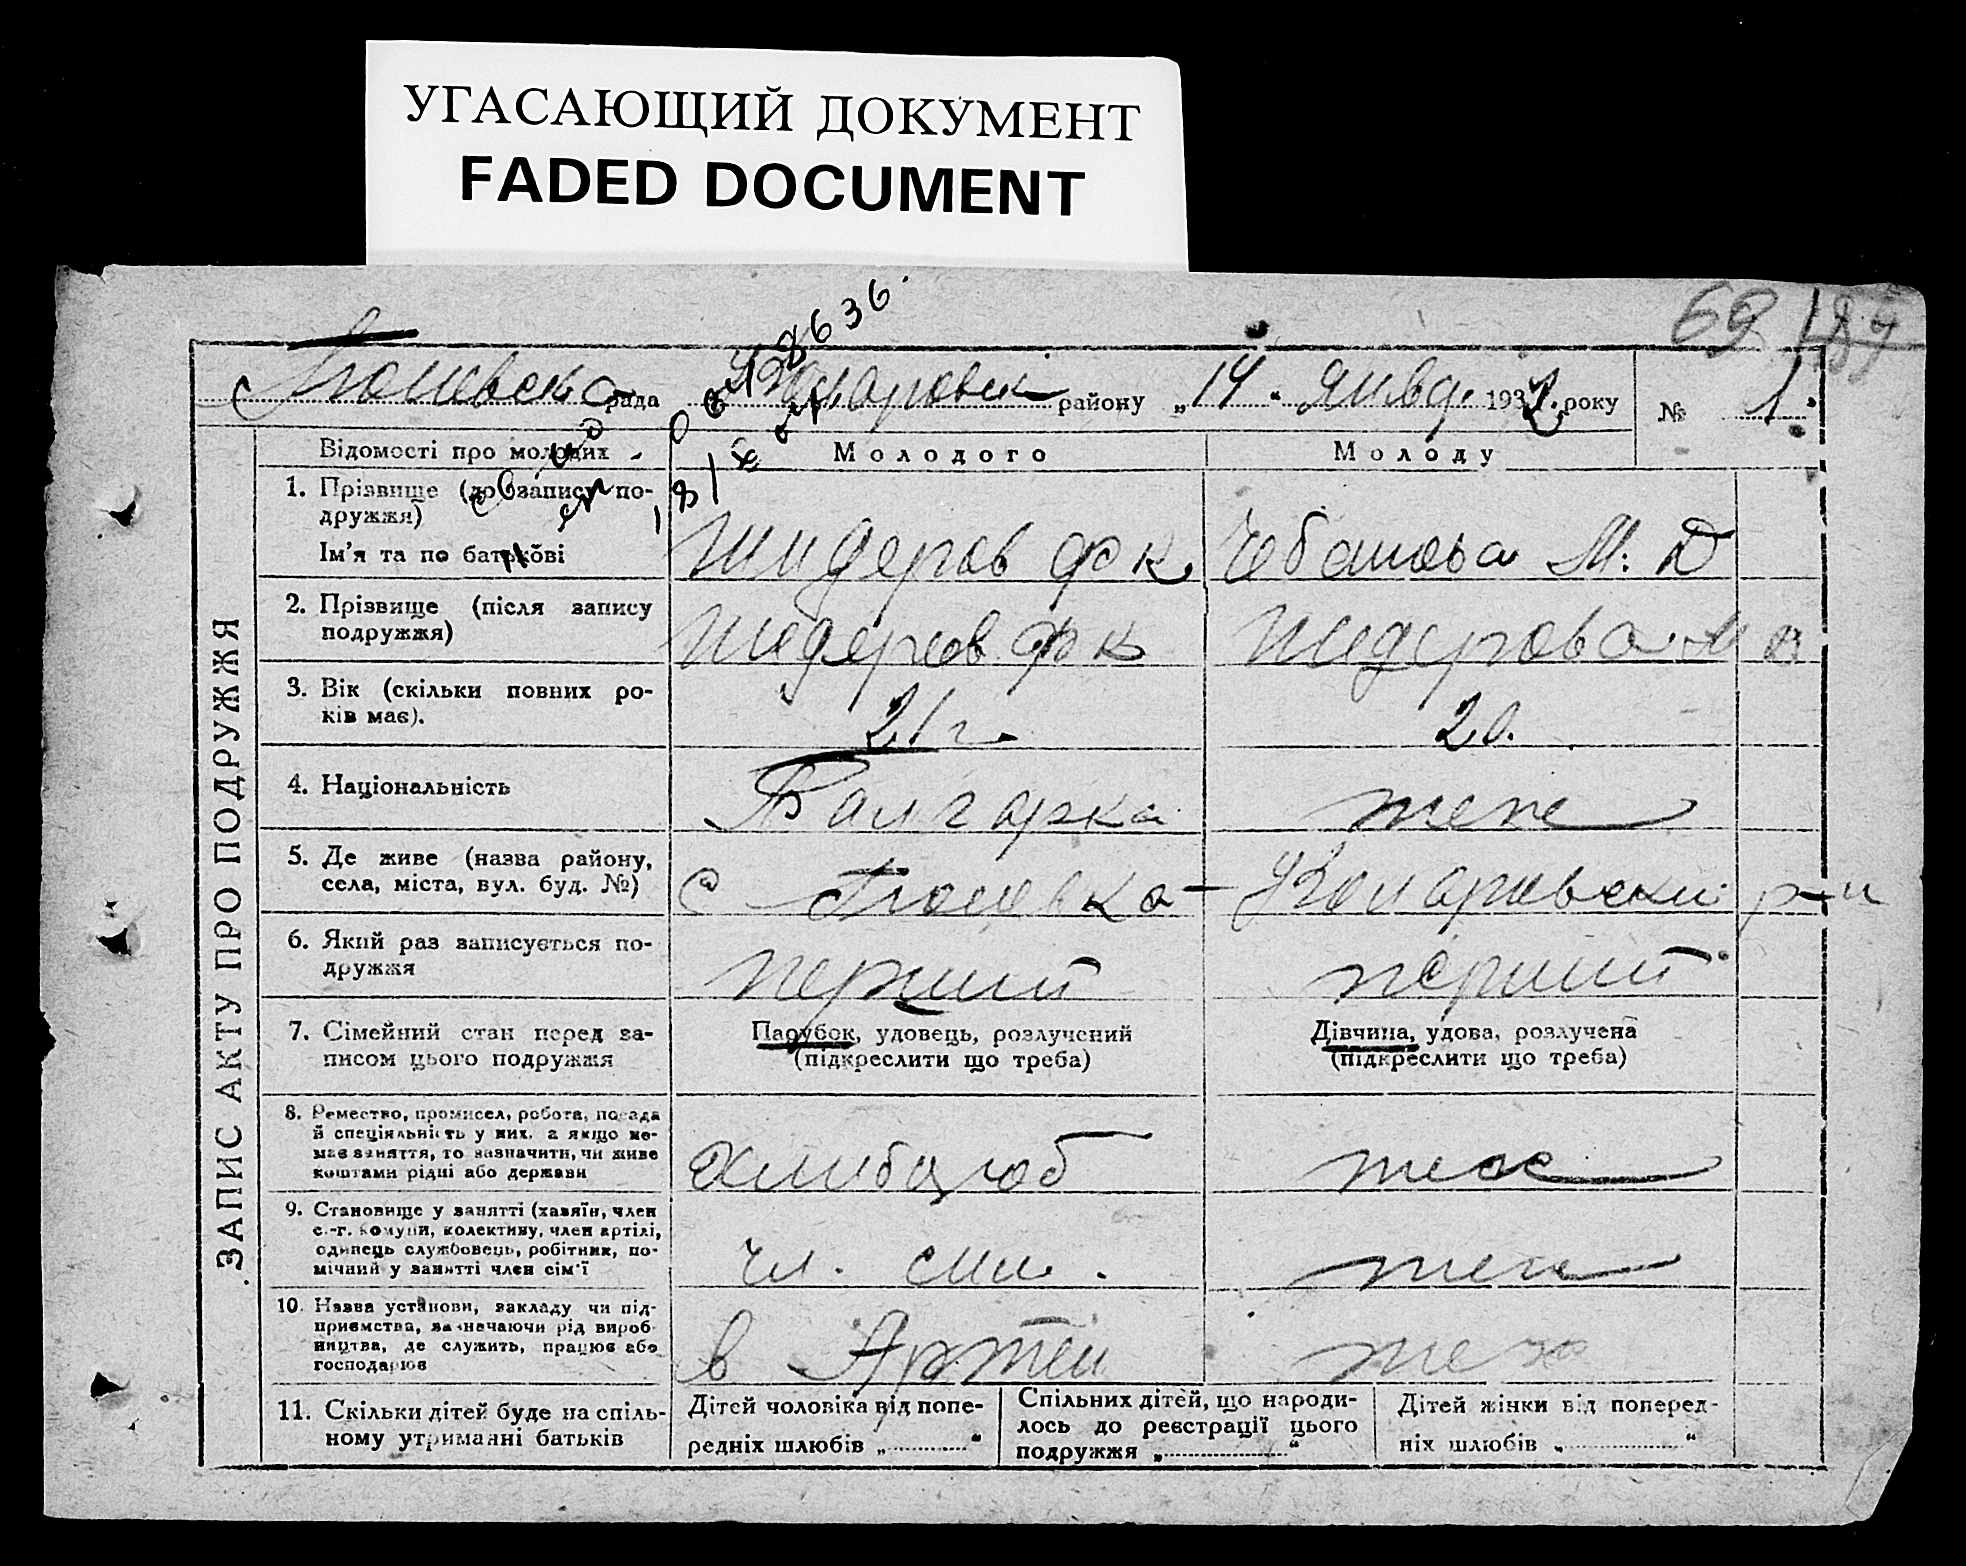 УГАСАЮЩИЙ ДОКУМЕНТ
FADED DOCUMENT
69 189
рада району „14“ янва. 1932 року № 1.
ЗАПИС АКТУ ПРО ПОДРУЖЖЯ
Відомості про молодих Молодого Молоду
1. Прізвище (до запису подружжя)
Ім'я та по батькові
Шидеров Ф К Чебанова М. Д
2. Прізвище (після запису
подружжя)
Шидеров Ф К Шидерова М
3. Вік (скільки повних ро-
ків має).
21 г. 20.
4. Національність
Балгарка теже
5. Де живе (назва району,
села, міста, вул. буд. №)
с р-н
6. Який раз записується по-
дружжя
перший перший
7. Сімейний стан перед за-
писом цього подружжя
Парубок, удовець, розлучений
(підкреслити що треба)
Дівчина, удова, розлучена
(підкреслити що треба)
8. Ремество, промисел, робота, посада
й спеціяльність у них, а якщо не-
має заняття, то зазначити, чи живе
коштами рідні або держави
9. Становище у занятті (хазяїн, член
с.-г. комуни, колективу, член артілі,
одинець службовець, робітник, по-
мічний у занятті член сім'ї
чл.
10. Назва установи, закладу чи під-
приємства, зазначаючи рід вироб-
ництва, де служить, працює або
господарює
в Артел
11. Скільки дітей буде на спіль-
ному утриманні батьків
Дітей чоловіка від попе-
редніх шлюбів „ “
Спільних дітей, що народи-
лось до реєстрації цього
подружжя „ “
Дітей жінки від поперед-
ніх шлюбів „ “